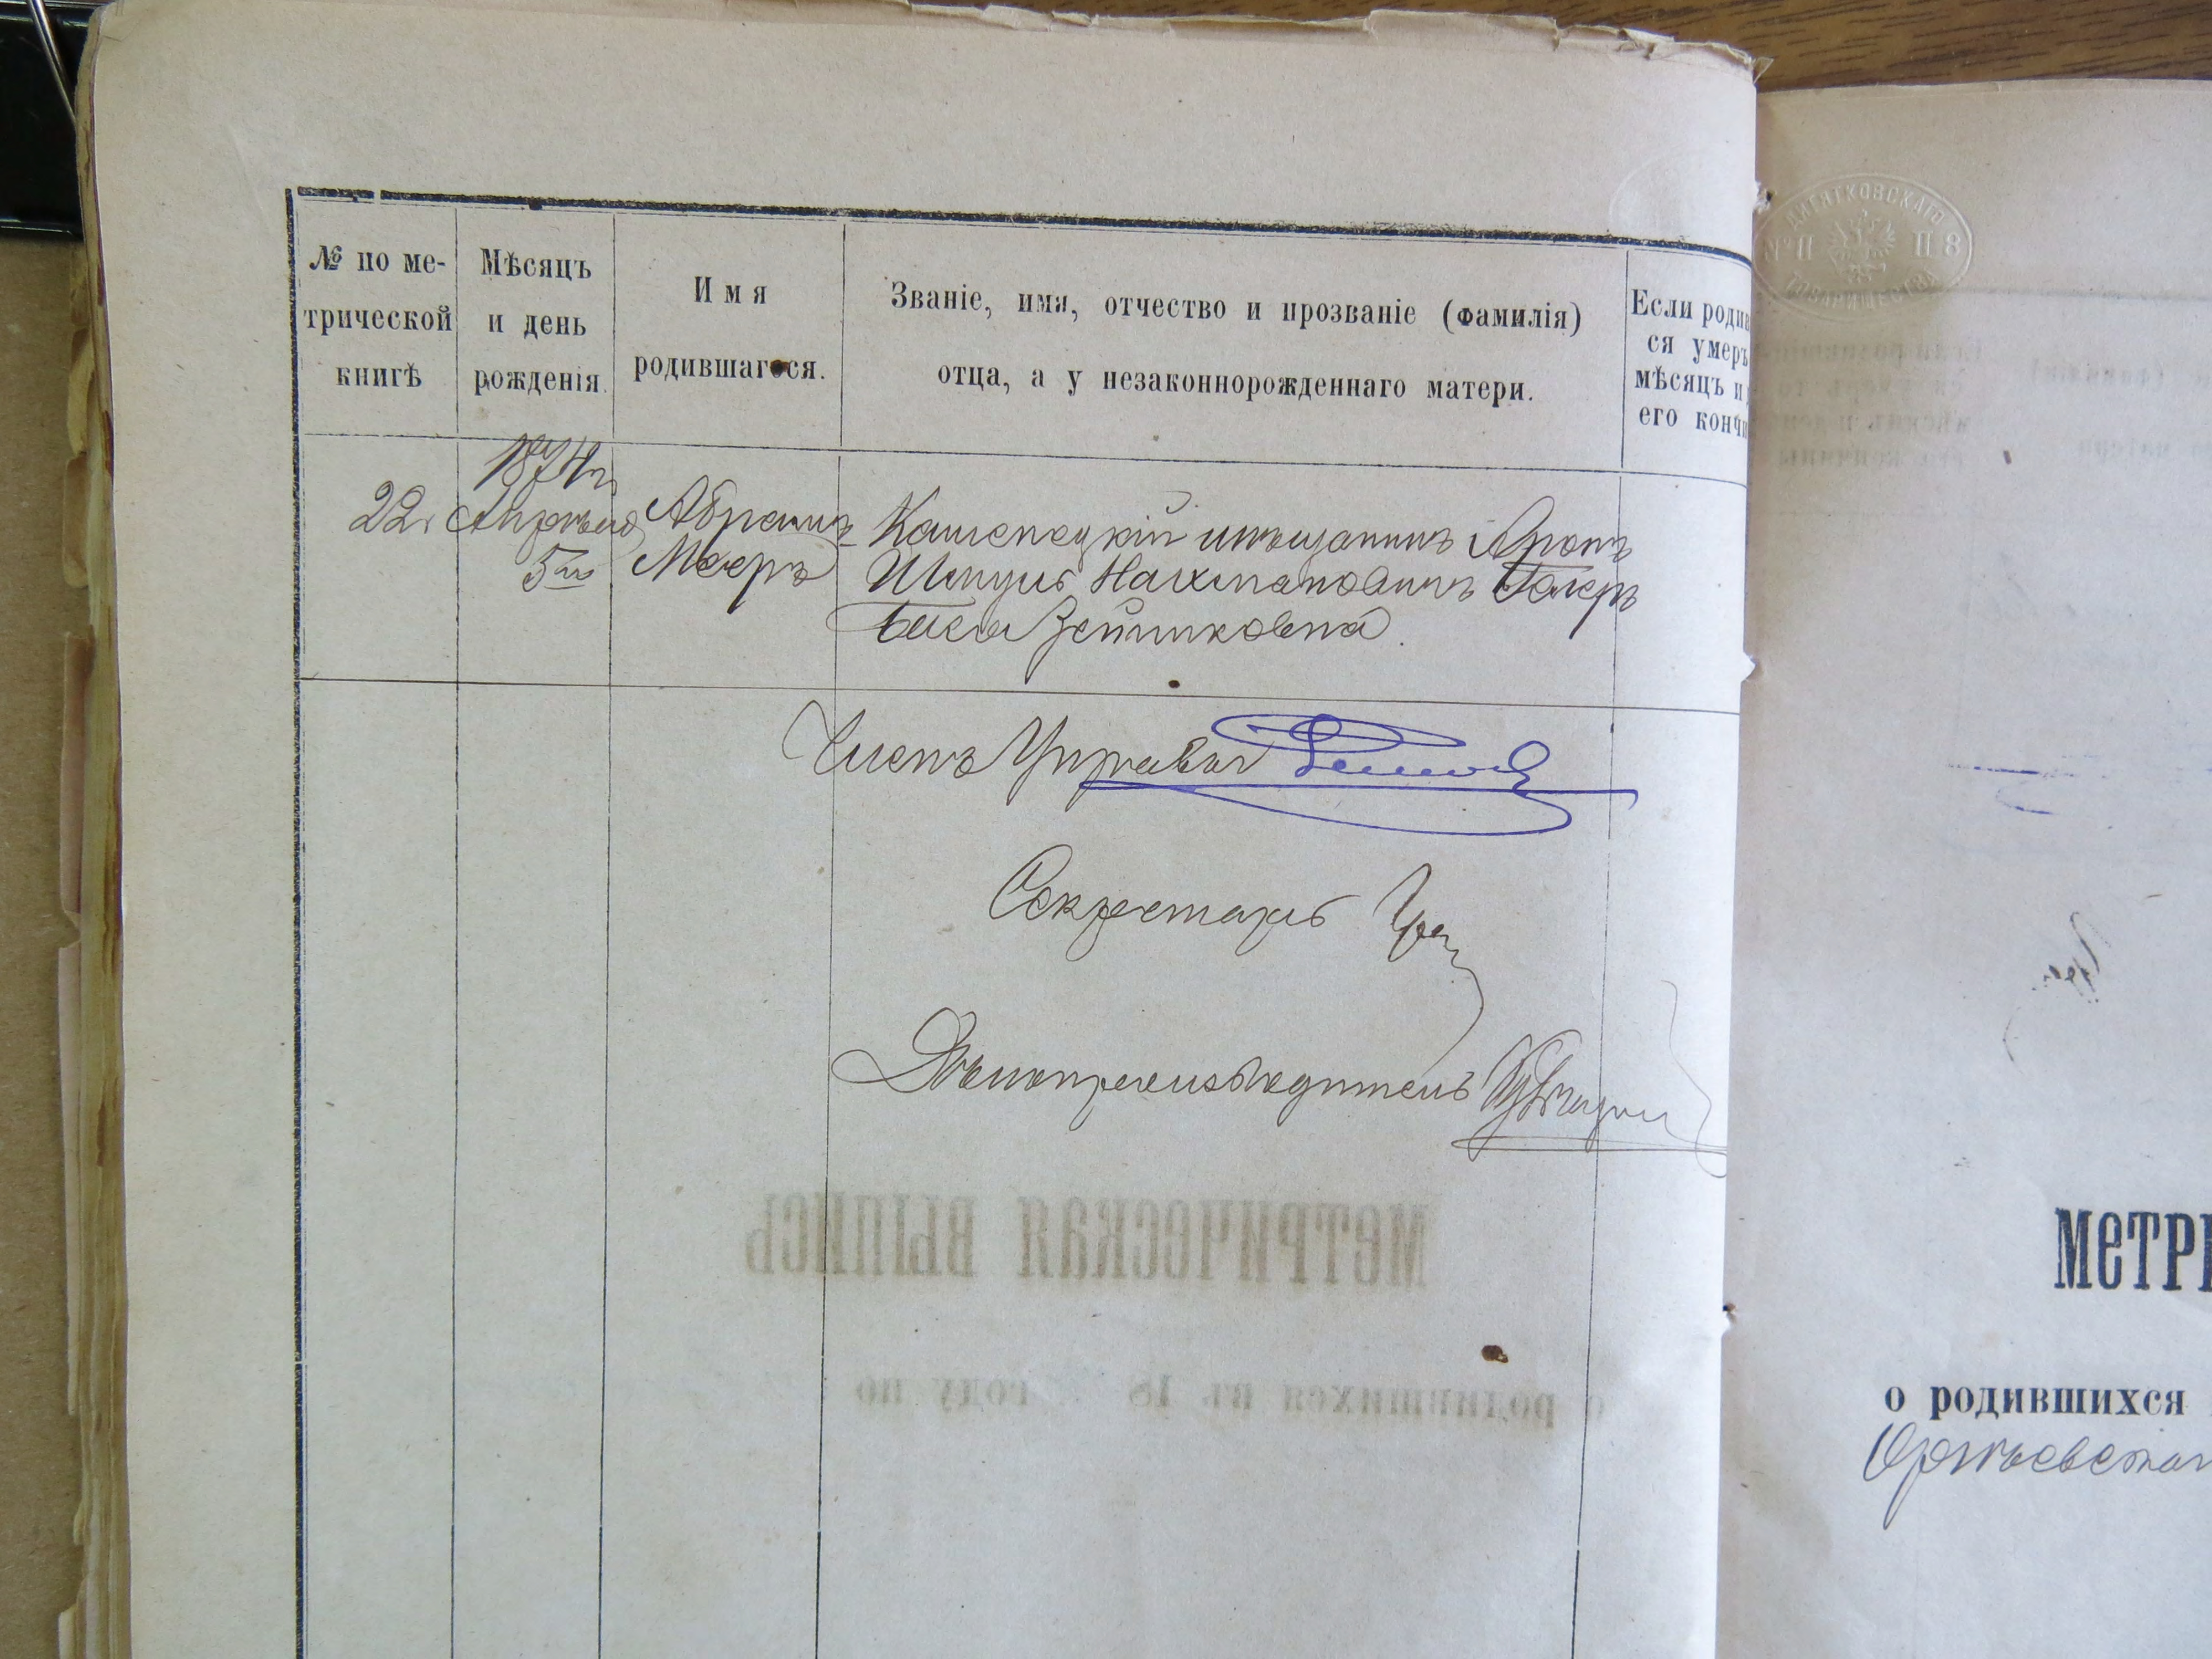 № по ме-
трической
книгѣ
Мѣсяцъ
и день
рожденія.
Имя
родившагося.
Званіе, имя, отчество и прозваніе (фамилія)
отца, а у незаконнорожденнаго матери.
Если родив
ся умеръ
мѣсяцъ и
его кончи
1874 г.
22. Апрѣля
5го
Абрамъ
Мееръ
Каменецкій мѣщанинъ Аронъ
Шмуль Нахмановичъ
Зейликовна.
Членъ Управы
Секретарь
Дѣлопроизводитель
МЕТРИЧЕСКАЯ ВЫПИСЬ
о родившихся въ 18 году по
ДИТЯТКОВСКАГО
№ П П 8
ТОВАРИЩЕСТВА
МЕТРИ
о родившихся